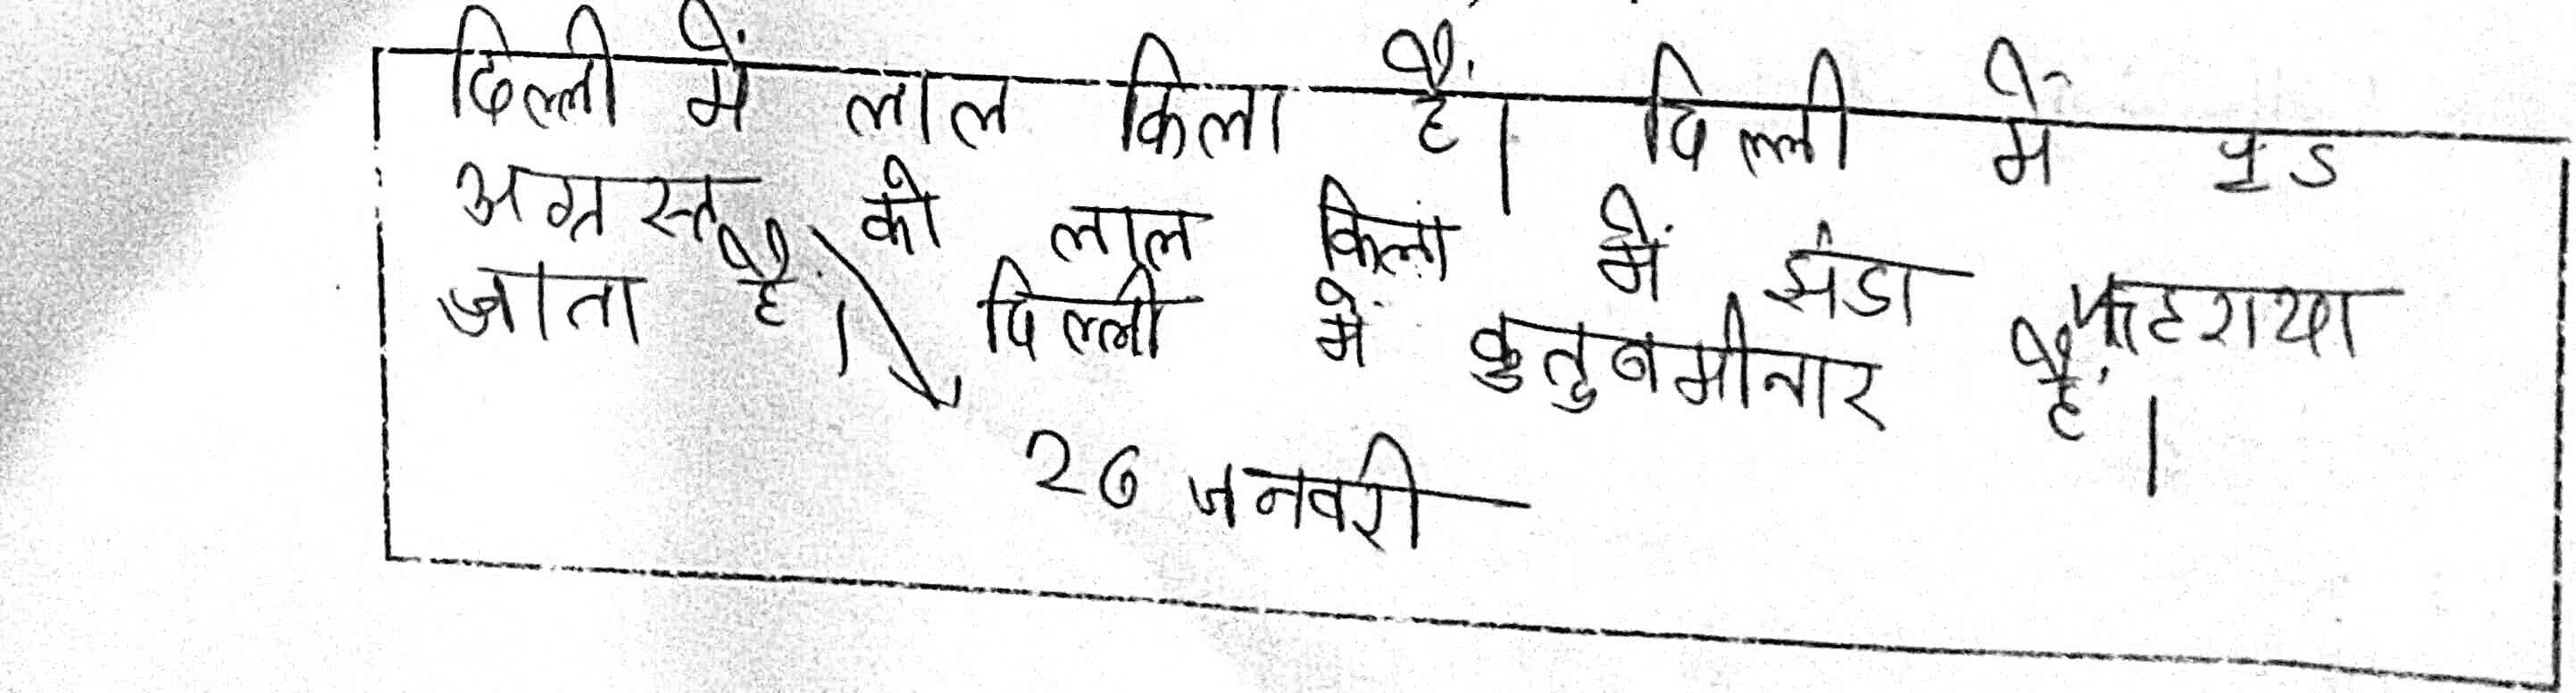 दिल्ली में लाल किला हैं। दिल्ली में 15
अगस्त को लाल किला में झंडा फहराया
जाता हैं। दिल्ली में कुतुबमीनार हैं।
26 जनवरी